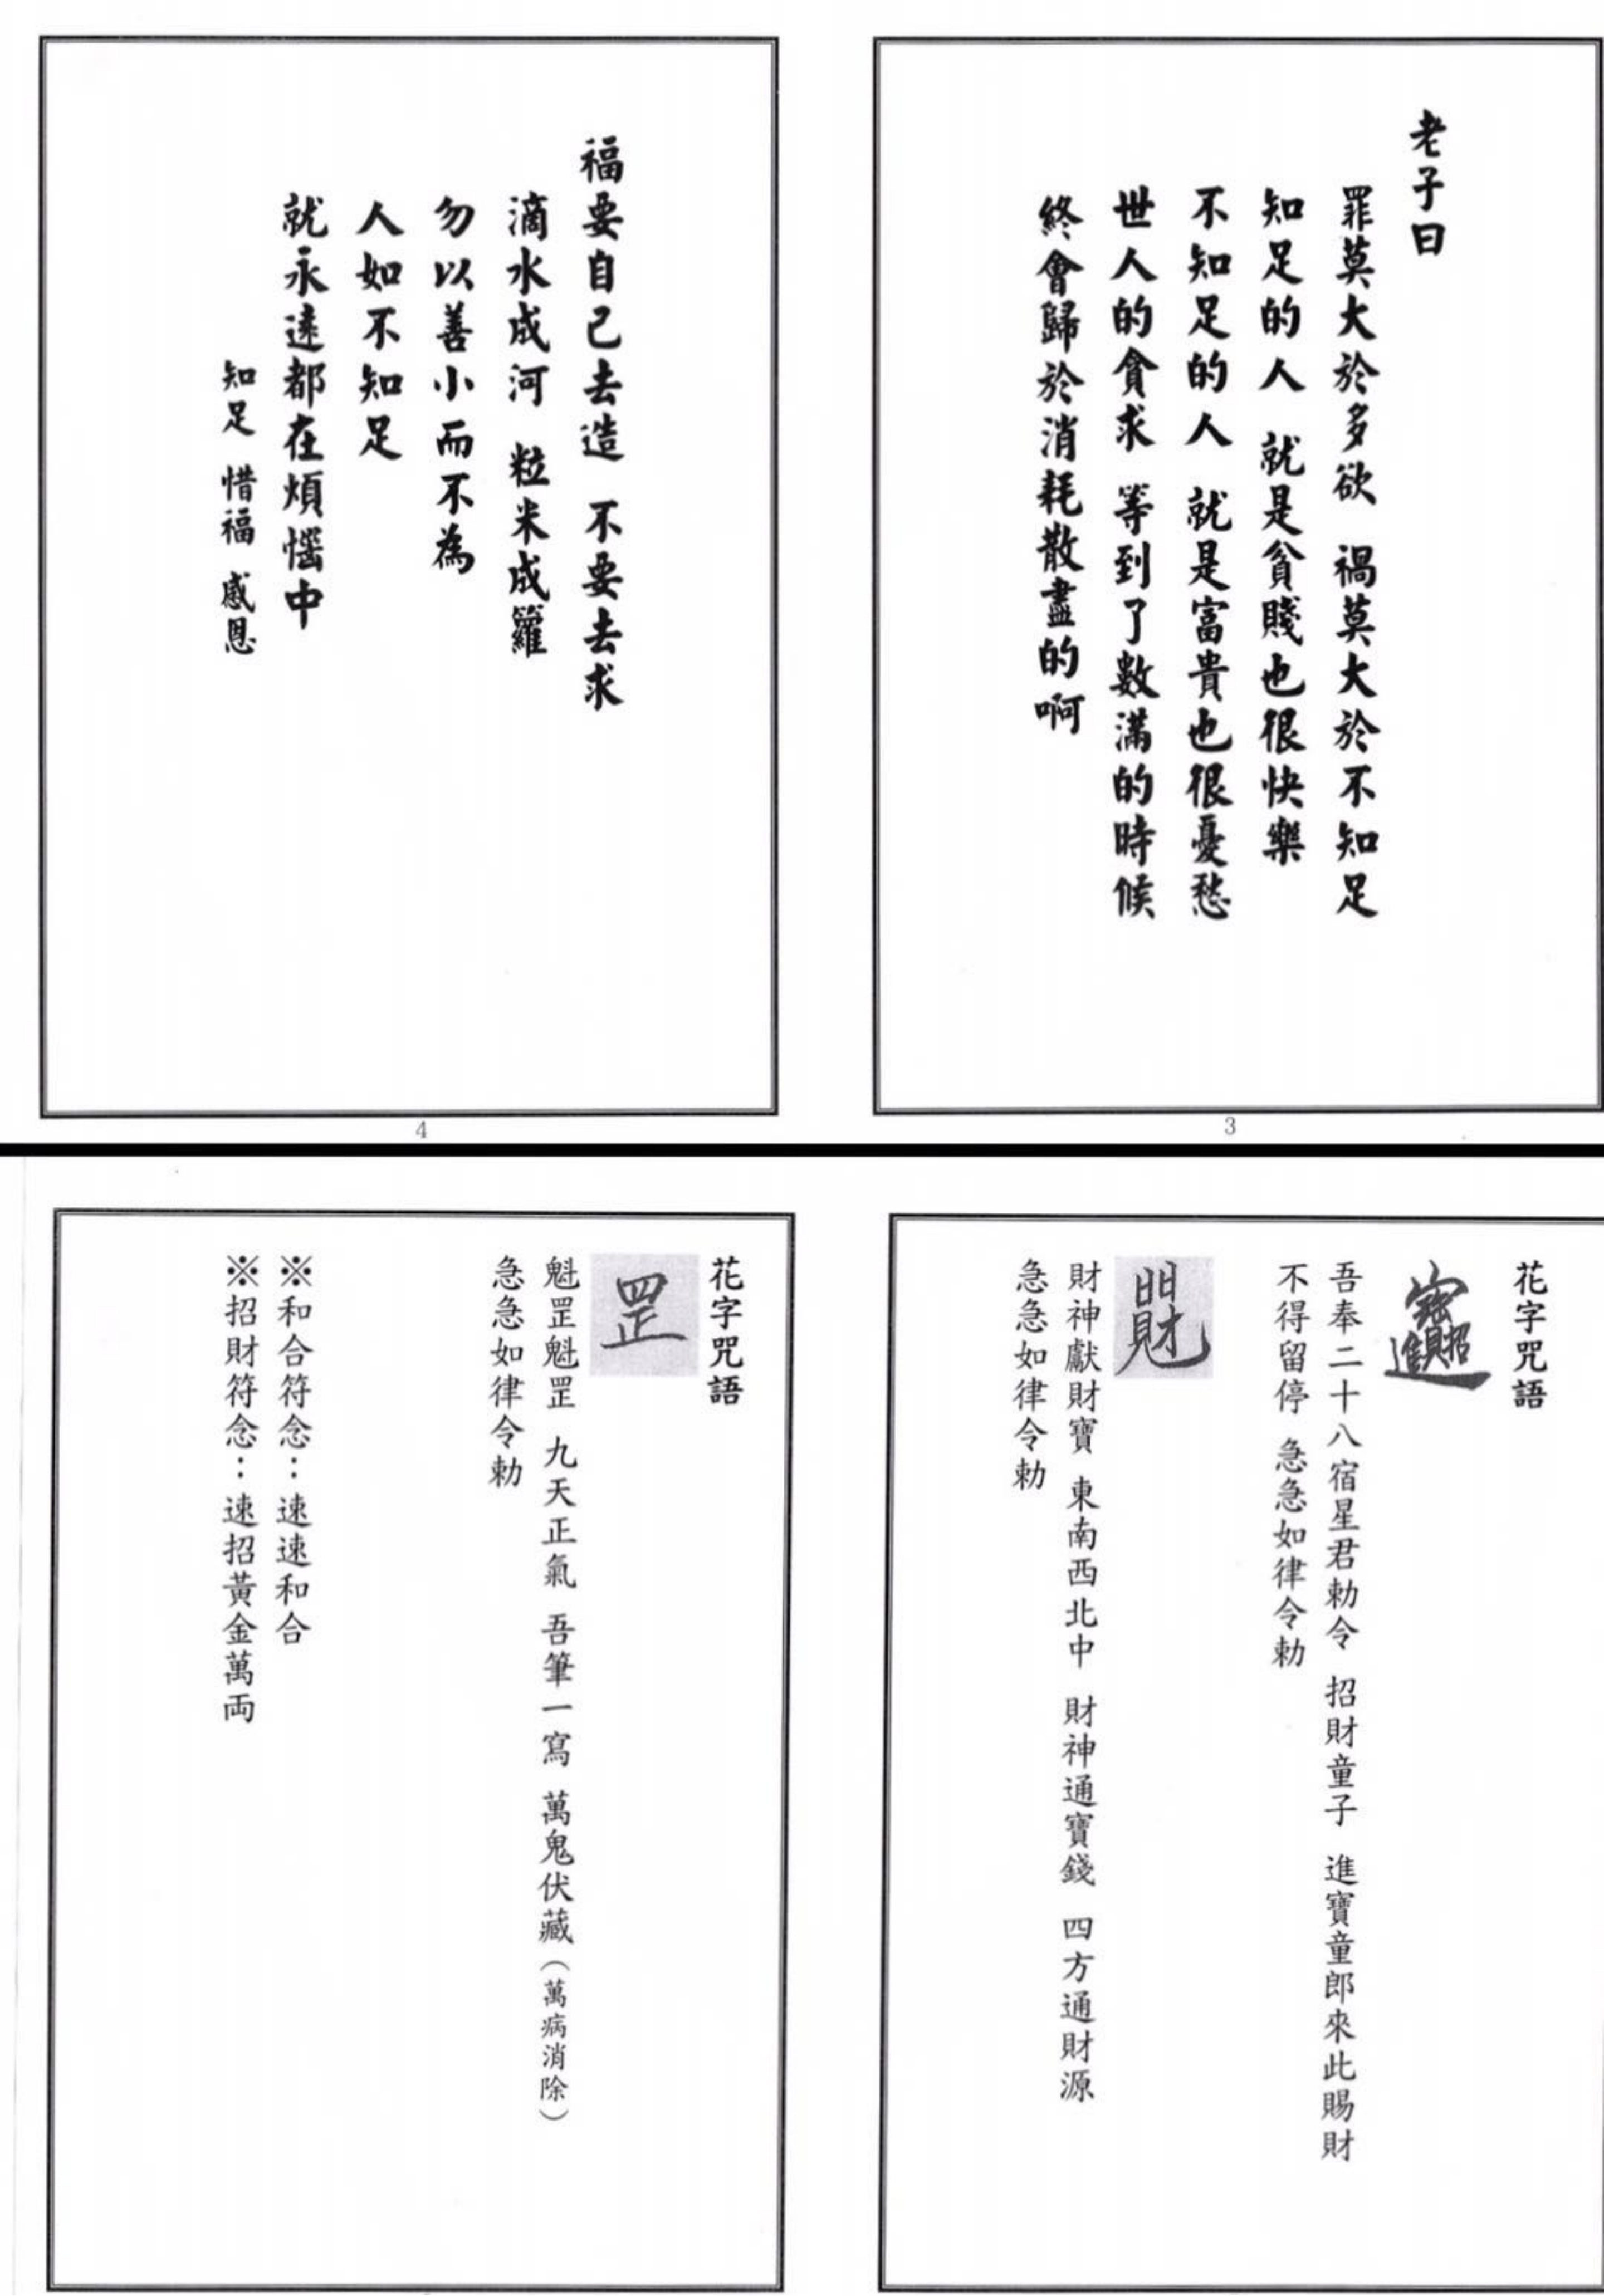 老子曰
罪莫大於多欲 禍莫大於不知足
知足的人 就是貧賤也很快樂
不知足的人 就是富貴也很憂愁
世人的貪求 等到了數滿的時候
終會歸於消耗散盡的啊
3
福要自己去造 不要去求
滴水成河 粒米成籮
勿以善小而不為
人如不知足
就永遠都在煩惱中
知足 惜福 感恩
4
花字咒語
吾奉二十八宿星君勅令 招財童子 進寶童郎來此賜財
不得留停 急急如律令勅
財神獻財寶 東南西北中 財神通寶錢 四方通財源
急急如律令勅
花字咒語
罡
魁罡魁罡 九天正氣 吾筆一寫 萬鬼伏藏（萬病消除）
急急如律令勅
※和合符念：速速和合
※招財符念：速招黃金萬両